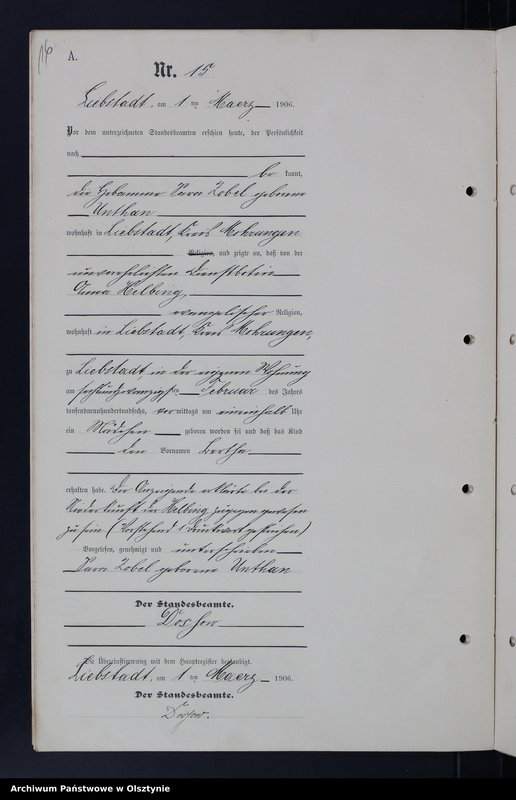 16
A.
Nr. 15
Liebstadt, am 1 ten Maerz 1906.
Vor dem unterzeichneten Standesbeamten erschien heute, der Persönlichkeit
nach
be kannt,
die Hebamme Sara Zobel geborene
Unthan
wohnhaft in Liebstadt, Kreis Mohrungen
Religion, und zeigte an, daß von der
unverehelichten Dienstbotin
Anna Helbing,
evangelischer Religion,
wohnhaft in Liebstadt, Kreis Mohrungen,
zu Liebstadt, in der Wohnung
am sechsundzwanzigsten Februar des Jahres
tausendneunhundertundsechs, vor mittags um eineinhalb Uhr
ein Mädchen geboren worden sei und daß das Kind
den Vornamen Bertha
erhalten habe. Die Anzeigende erklärte bei der
Niederkunft der Helbing zugegen gewesen
zu sein (Vorstehend 1 Druckwort gestrichen)
Vorgelesen, genehmigt und unterschrieben
Sara Zobel geborene Unthan
Der Standesbeamte.
Die Übereinstimmung mit dem Hauptregister beglaubigt.
Liebstadt, am 1 ten Maerz 1906.
Der Standesbeamte.
Archiwum Państwowe w Olsztynie